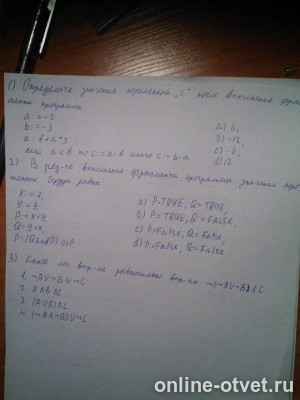 1) Определите значения переменной "c" после выполнения фраг-
мента программы
a: = -2 а) 6;
b: = -3 б) -12;
a: b+a*3 с) -6;
если a<b то c:=a-b иначе c:=b-a д) 12
2) В рез-те выполнения фрагмента программы значения пере-
менные будут равны:
а) P=TRUE, Q=TRUE,
б) P=TRUE, Q=FALSE,
c) P=False, Q=False;
d) P=False, Q=False
3) Какое лог выр-ие равносильно выр-ю: ¬(¬A∨¬B)∧C
1. ¬A∨¬B∨¬C
2. A∧B∧C
3. (A∨B)∧C
4. (¬A∧¬B)∨¬C
online-otvet.ru